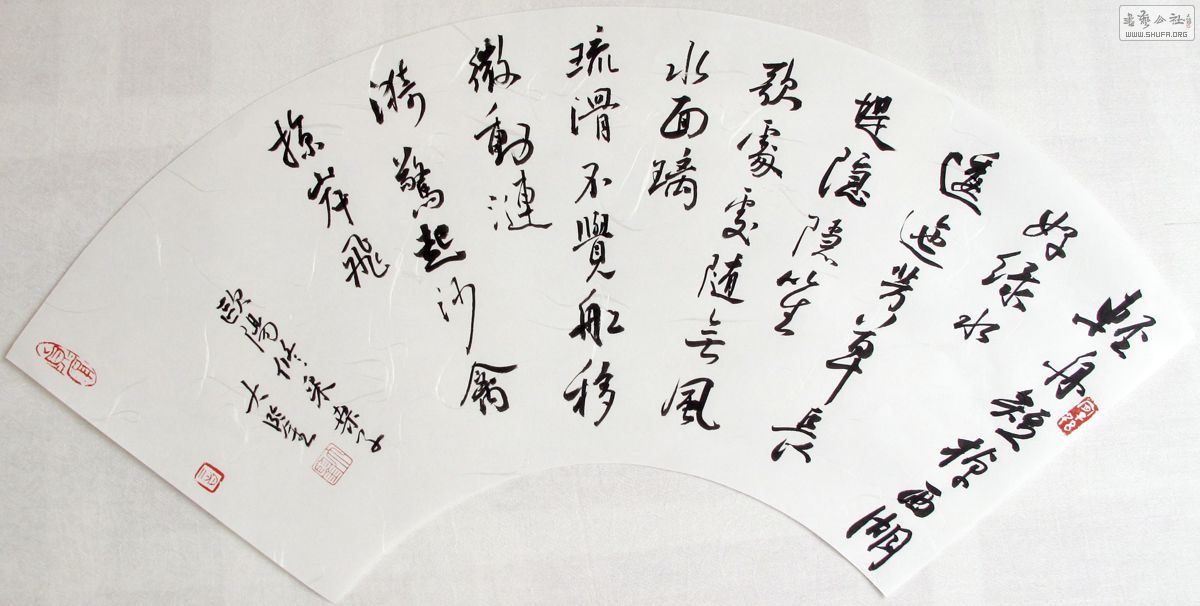 輕舟短棹西湖
好綠水
逶迤芳草長
堤隱隱笙
歌處處随無風
水面璃
琉滑不覺船移
微動漣
漪驚起沙禽
掠岸飛
歐陽修采桑子
大
書藝公社
WWW.SHUFA.ORG